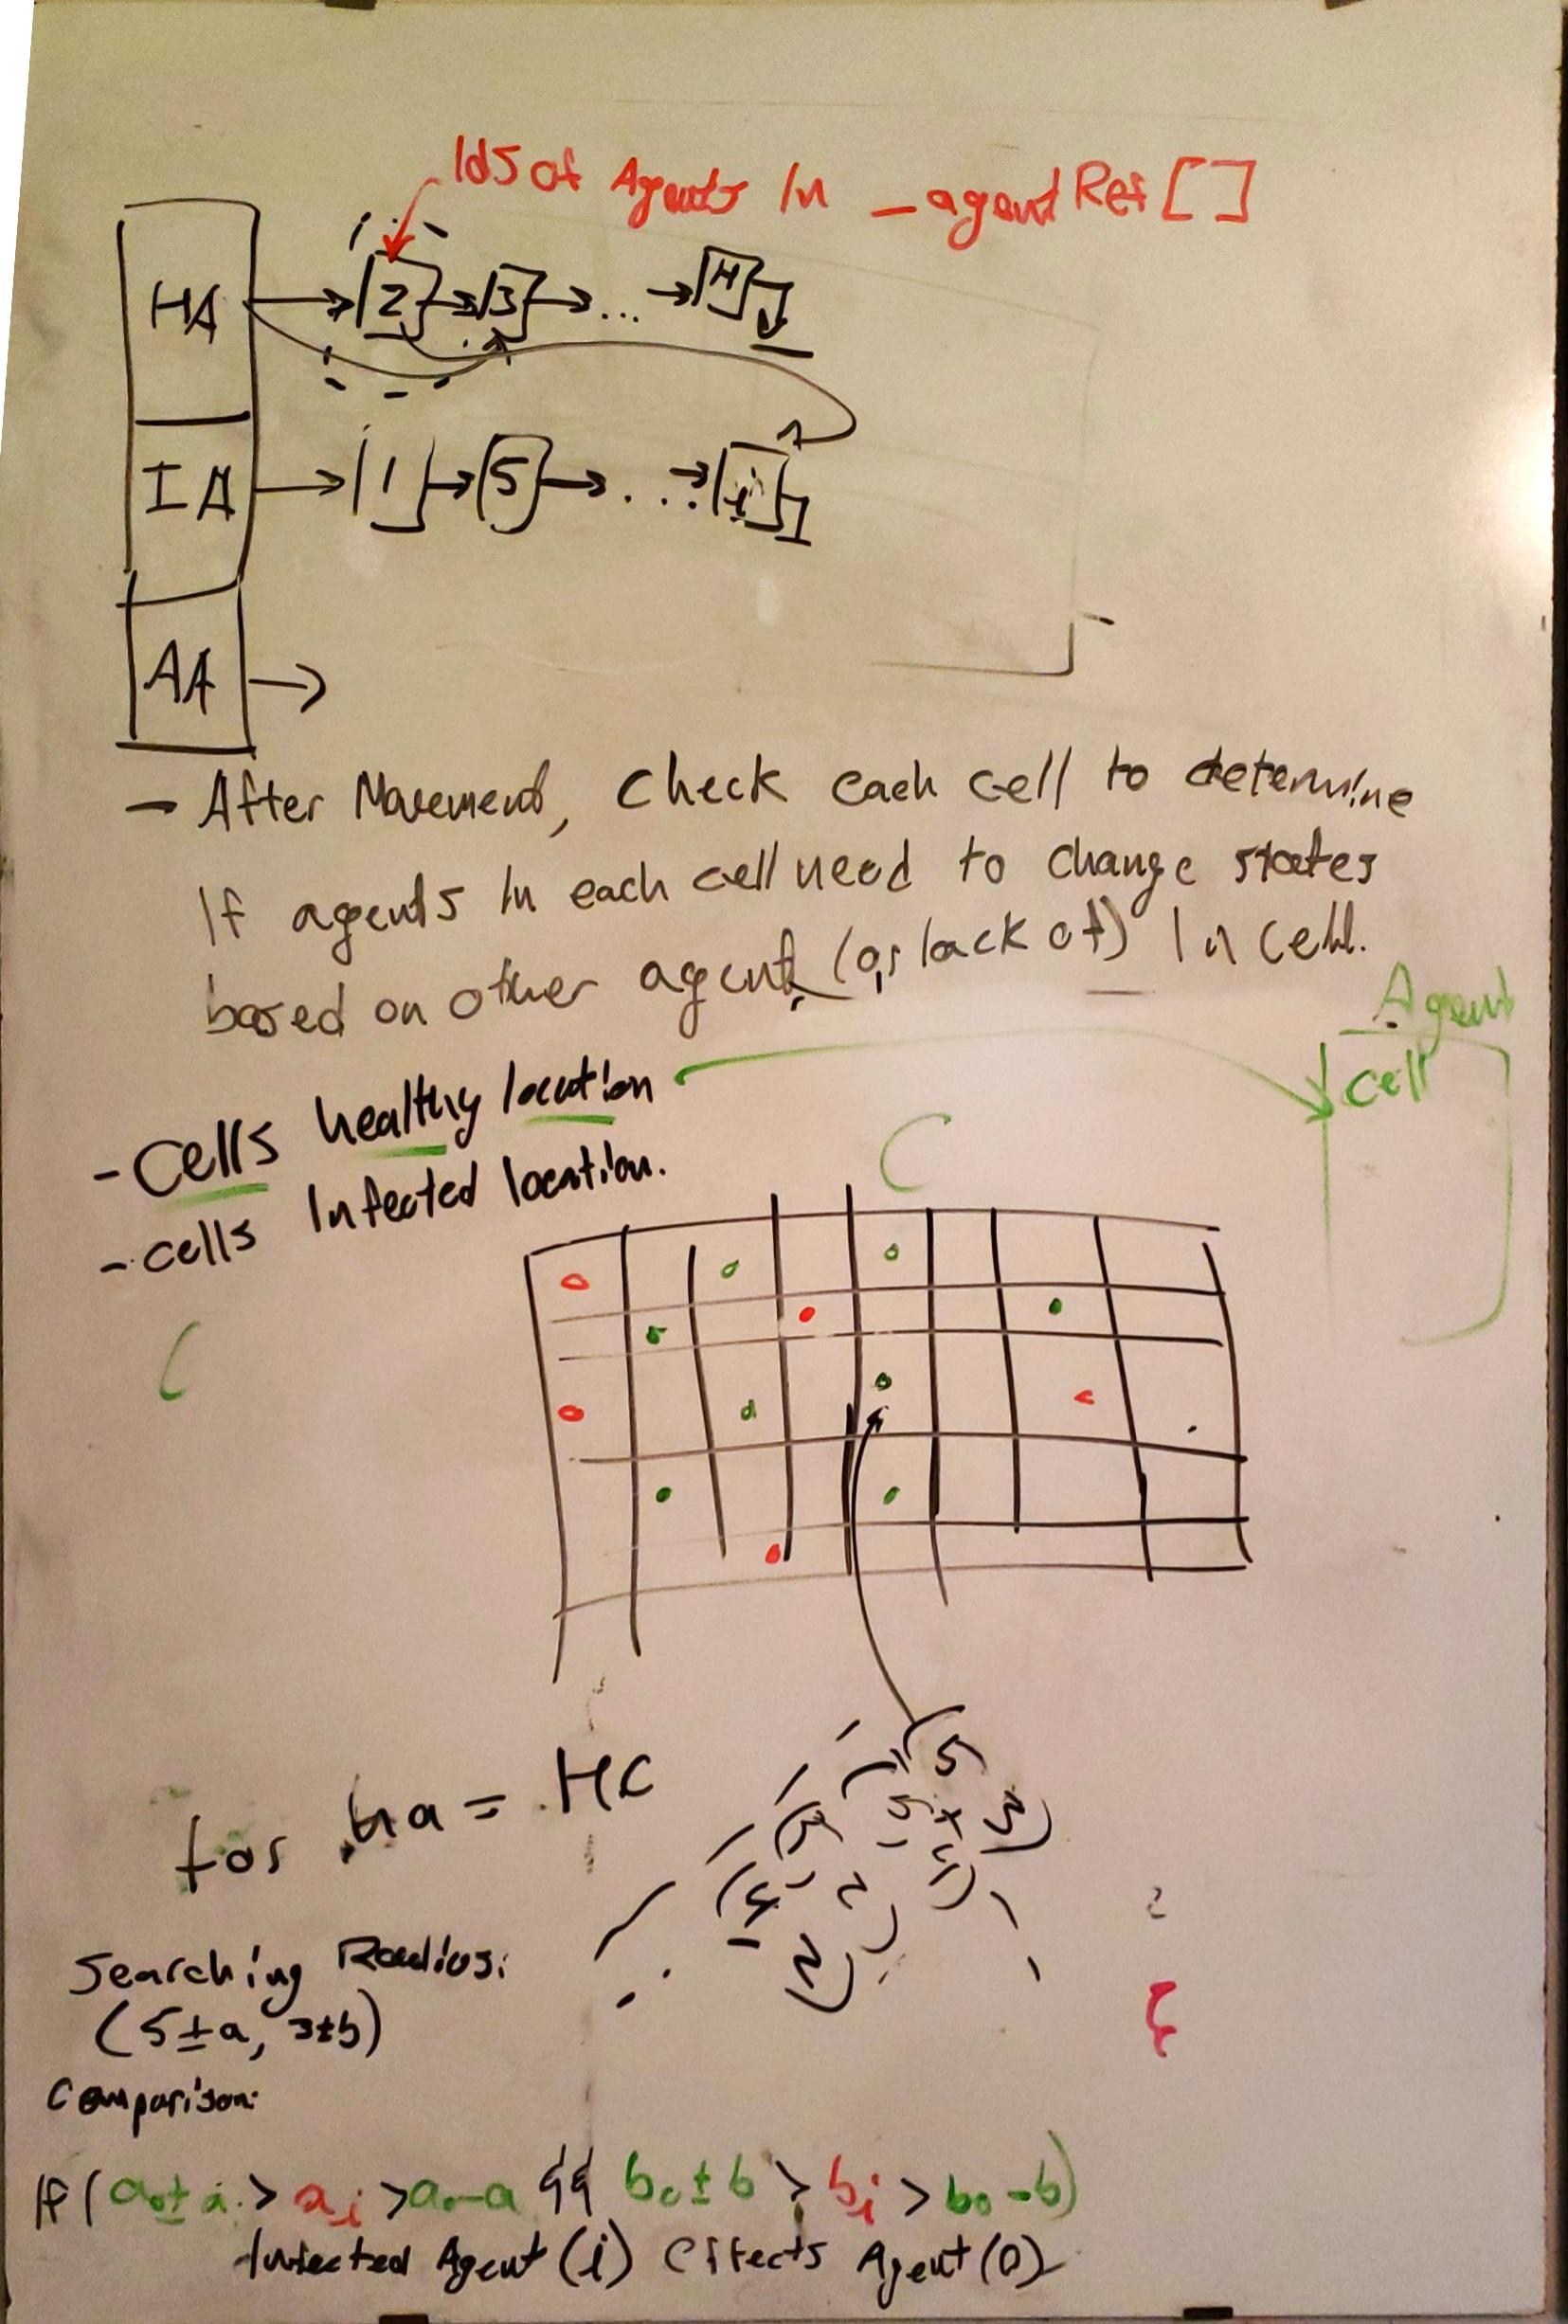 Ids of Agents In _agentRef[]
HA → 2 → 3 → ... → H
IA → 1 → 5 → ... → i
AA →
- After Movement, check each cell to determine
If agents in each cell need to change states
based on other agent, (or lack of) In cell.
Agent
cell
- Cells healthy location
- cells Infected location.
C
C
for ha = HC
Searching Radius:
(5±a, 3±b)
Comparison:
If (a₀±a > aᵢ > a₀-a && b₀±b > bᵢ > b₀-b)
Infected Agent(i) Effects Agent(0)